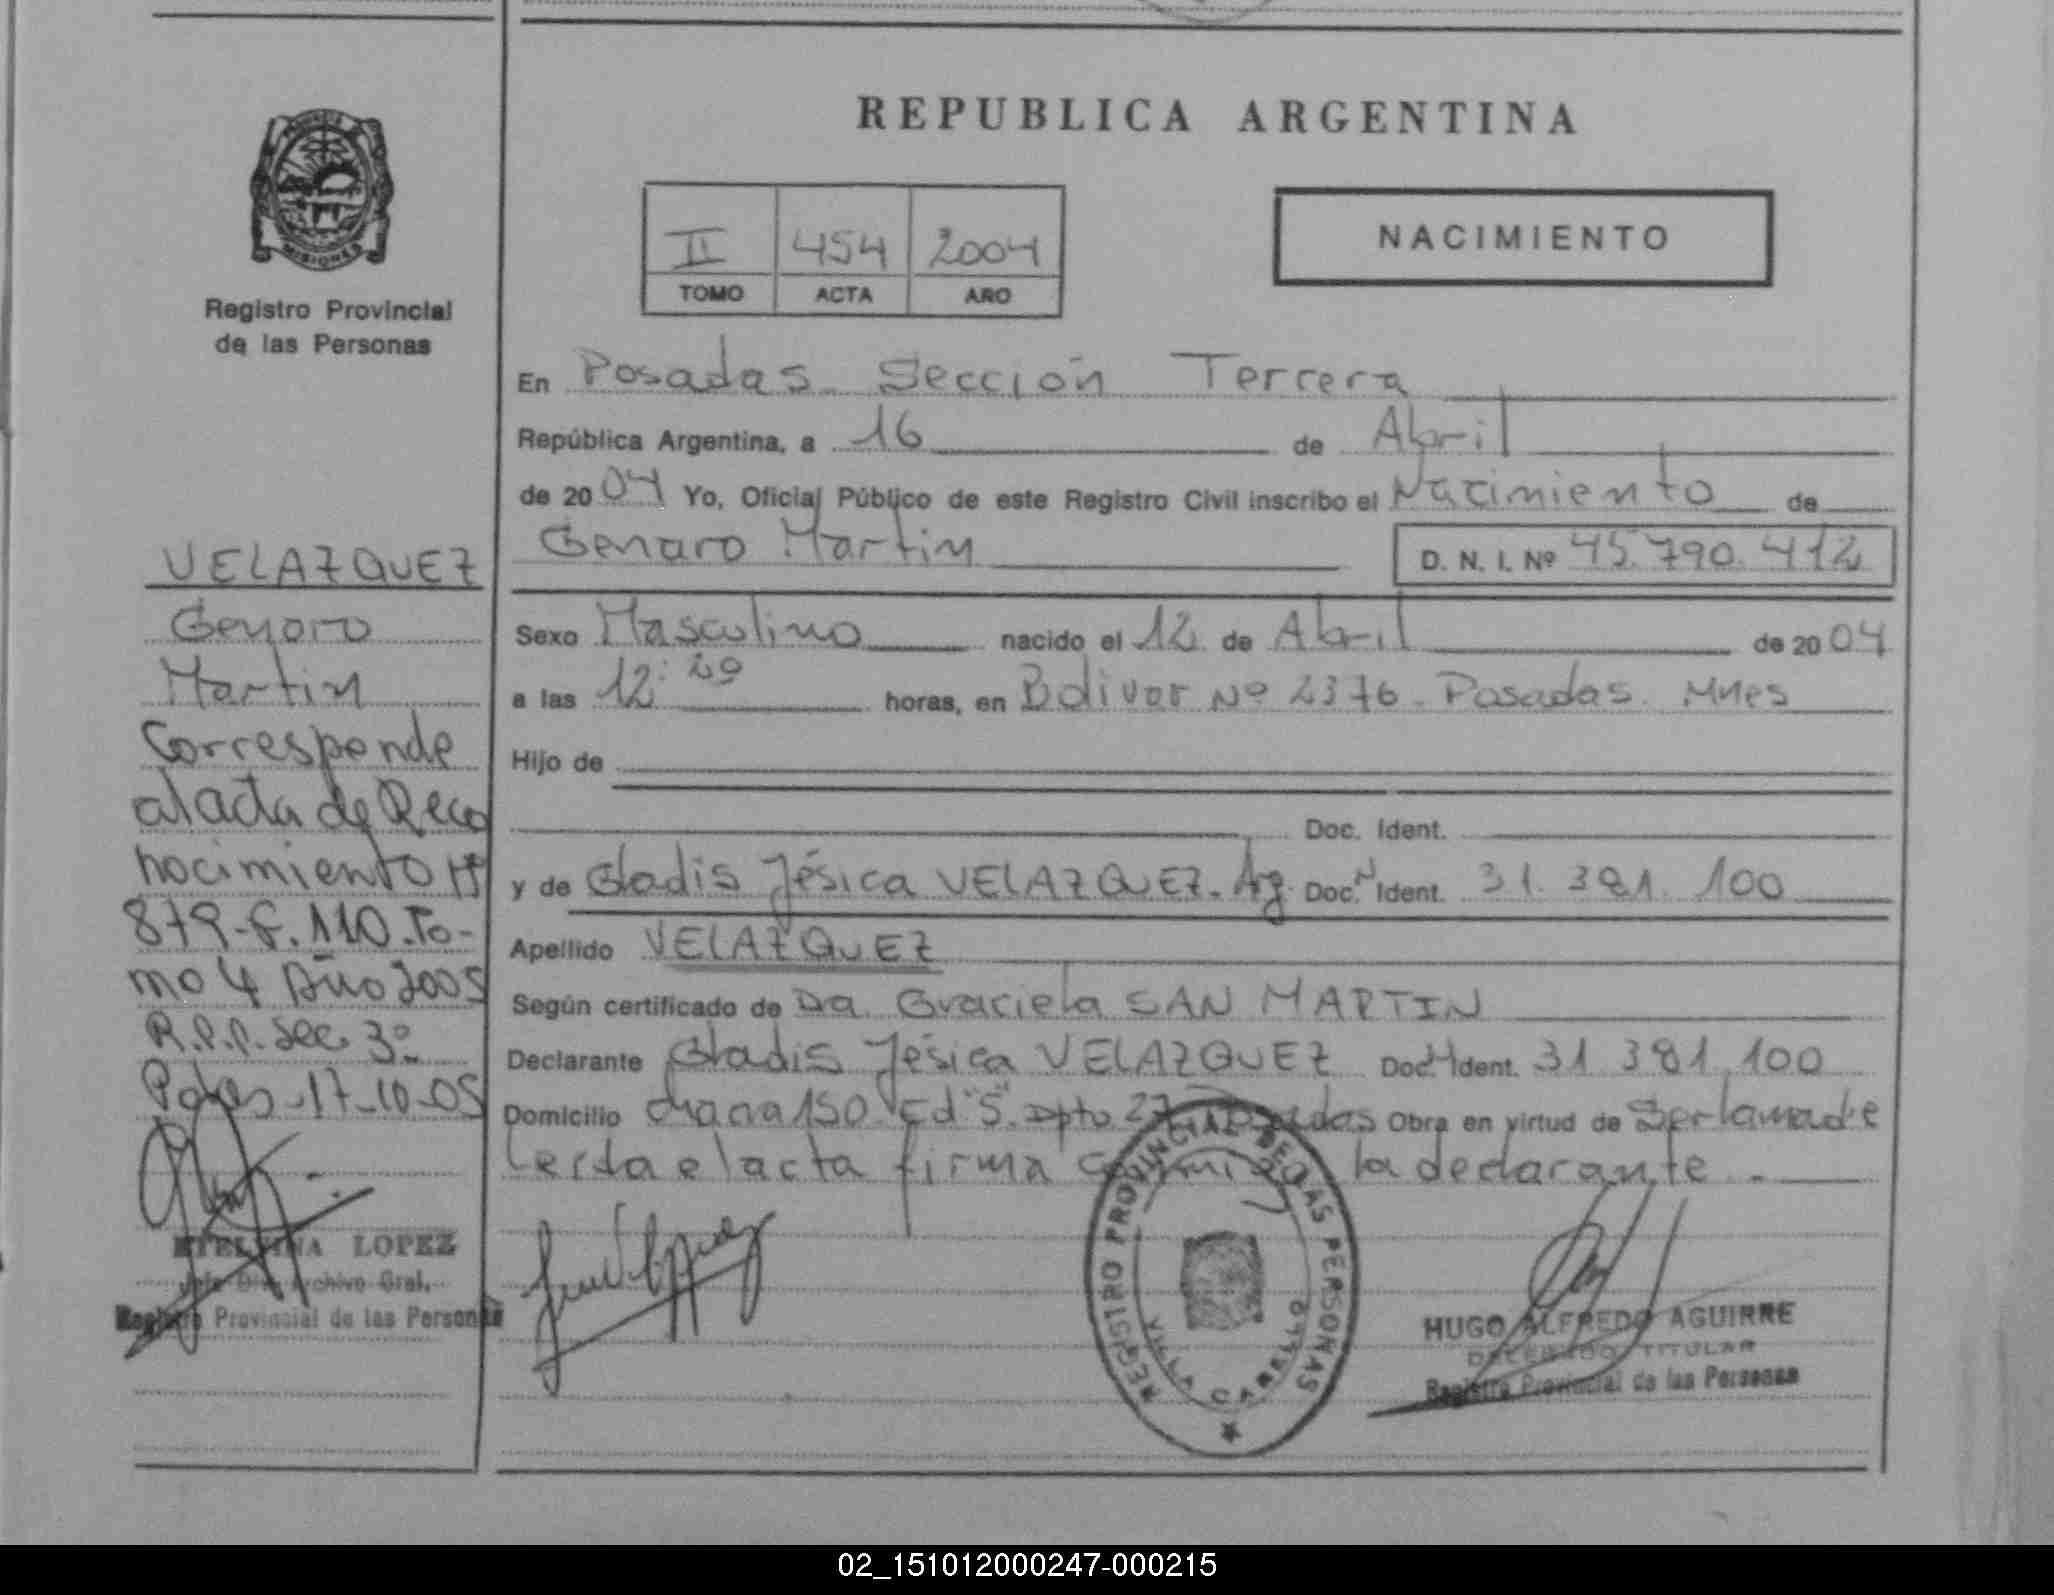 REPUBLICA ARGENTINA
PROVINCIA
MISIONES
Registro Provincial
de las Personas
II 454 2004
TOMO ACTA AÑO
NACIMIENTO
En Posadas Sección Tercera
República Argentina, a 16 de Abril
de 2004 Yo, Oficial Público de este Registro Civil inscribo el Nacimiento de
Genaro Martin D. N. I. Nº 45.790.412
Sexo Masculino nacido el 12 de Abril de 2004
a las 12:20 horas, en Bolivar Nº 2376. Posadas. Mnes
Hijo de
Doc. Ident.
y de Gladis Jésica VELAZQUEZ. Arg. Doc. N Ident. 31.381.100
Apellido VELAZQUEZ
Según certificado de Da. Graciela SAN MARTIN
Declarante Gladis Jésica VELAZQUEZ Doc. Ident. 31.381.100
Domicilio chacra 150 Ed "S" Dpto 27 Posadas Obra en virtud de Ser la madre
Leida el acta firma conmigo la declarante.
VELAZQUEZ
Genaro
Martin
Corresponde
al acta de Reco
nocimiento Nº
879-F.110.To-
mo 4 Año 2005
R.P.P. Sec. 3º
Pdas-17-10-05
ETELVINA LOPEZ
Jefe Div. Archivo Gral.
Registro Provincial de las Personas
REGISTRO PROVINCIAL DE LAS PERSONAS
VILLA CABELLO
HUGO ALFREDO AGUIRRE
DELEGADO TITULAR
Registro Provincial de las Personas
02_151012000247-000215